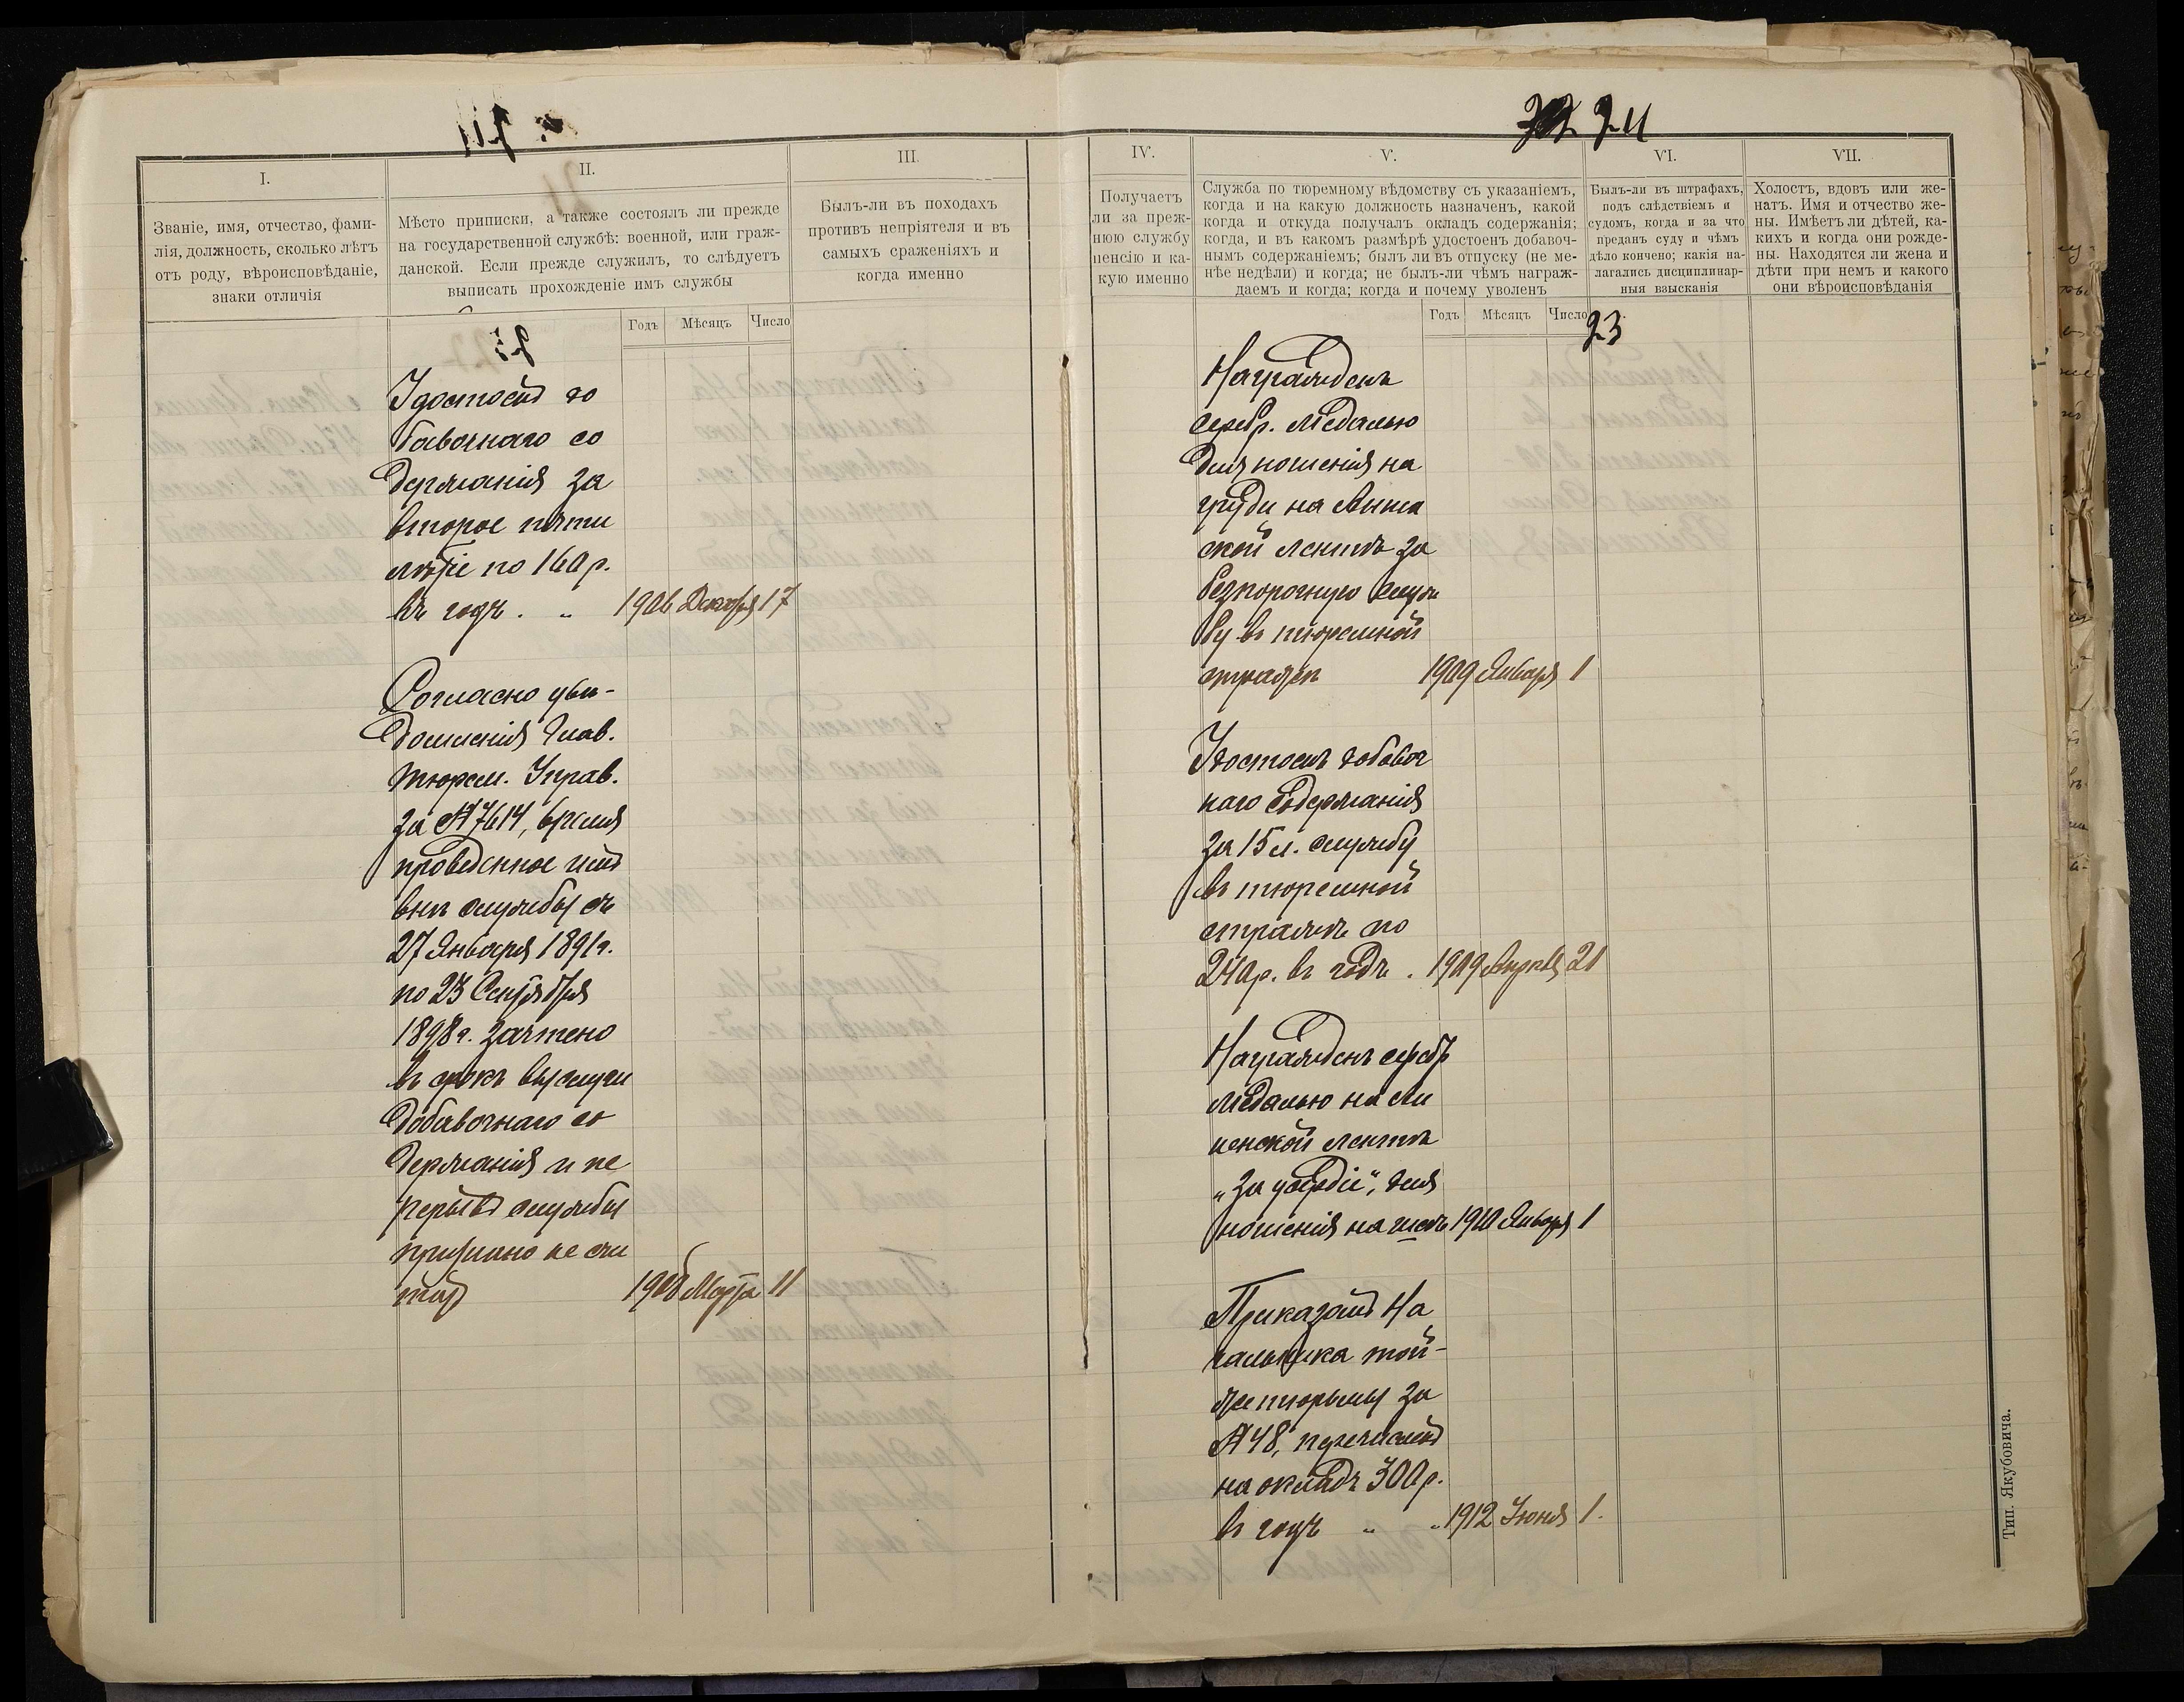 I.
Званіе, имя, отчество, фами-
лія, должность, сколько лѣтъ
отъ роду, вѣроисповѣданіе,
знаки отличія
II.
Мѣсто приписки, а также состоялъ ли прежде
на государственной службѣ: военной, или граж-
данской. Если прежде служилъ, то слѣдуетъ
выписать прохожденіе имъ службы
Годъ Мѣсяцъ Число
III.
Былъ-ли въ походахъ
противъ непріятеля и въ
самыхъ сраженіяхъ и
когда именно
Удостоенъ до
бавочнаго со
держанія за
второе пяти
лѣтіе по 160 р.
въ годъ . „ 1906 Декабря 17
Согласно увѣ-
домленія Глав.
Тюрем. Управ.
за № 7614, время
проведенное имъ
внѣ службы съ
27 Января 1891 г.
по 23 Сентября
1898 г. зачтено
въ срокъ выслуги
добавочнаго со
держанія и пе
рерывъ службы
признано не счи
тать 1908 Марта 11
24
IV.
Получаетъ
ли за преж-
нюю службу
пенсію и ка-
кую именно
V.
Служба по тюремному вѣдомству съ указаніемъ,
когда и на какую должность назначенъ, какой
когда и откуда получалъ окладъ содержанія;
когда, и въ какомъ размѣрѣ удостоенъ добавоч-
нымъ содержаніемъ; былъ ли въ отпуску (не ме-
нѣе недѣли) и когда; не былъ-ли чѣмъ награж-
даемъ и когда; когда и почему уволенъ
Годъ Мѣсяцъ Число
VI.
Былъ-ли въ штрафахъ,
подъ слѣдствіемъ и
судомъ, когда и за что
преданъ суду и чѣмъ
дѣло кончено; какія на-
лагались дисциплинар-
ныя взысканія
VII.
Холостъ, вдовъ или же-
натъ. Имя и отчество же-
ны. Имѣетъ ли дѣтей, ка-
кихъ и когда они рожде-
ны. Находятся ли жена и
дѣти при немъ и какого
они вѣроисповѣданія
23
Награжденъ
серебр. медалью
для ношенія на
груди на Аннен
ской лентѣ за
безпорочную служ
бу въ тюремной
стражѣ 1909 Января 1
Удостоенъ добавоч
наго содержанія
за 15 л. службу
въ тюремной
стражѣ по
240 р. въ годъ . 1909 Апрѣля 21
Награжденъ серебр
медалью на Ан
ненской лентѣ
„За усердіе", для
ношенія на шеѣ 1910 Января 1
Приказомъ На
чальника той-
же тюрьмы за
№ 48, перечисленъ
на окладъ 300 р.
въ годъ „ „ 1912 Іюня 1.
Тип. Якубовича.